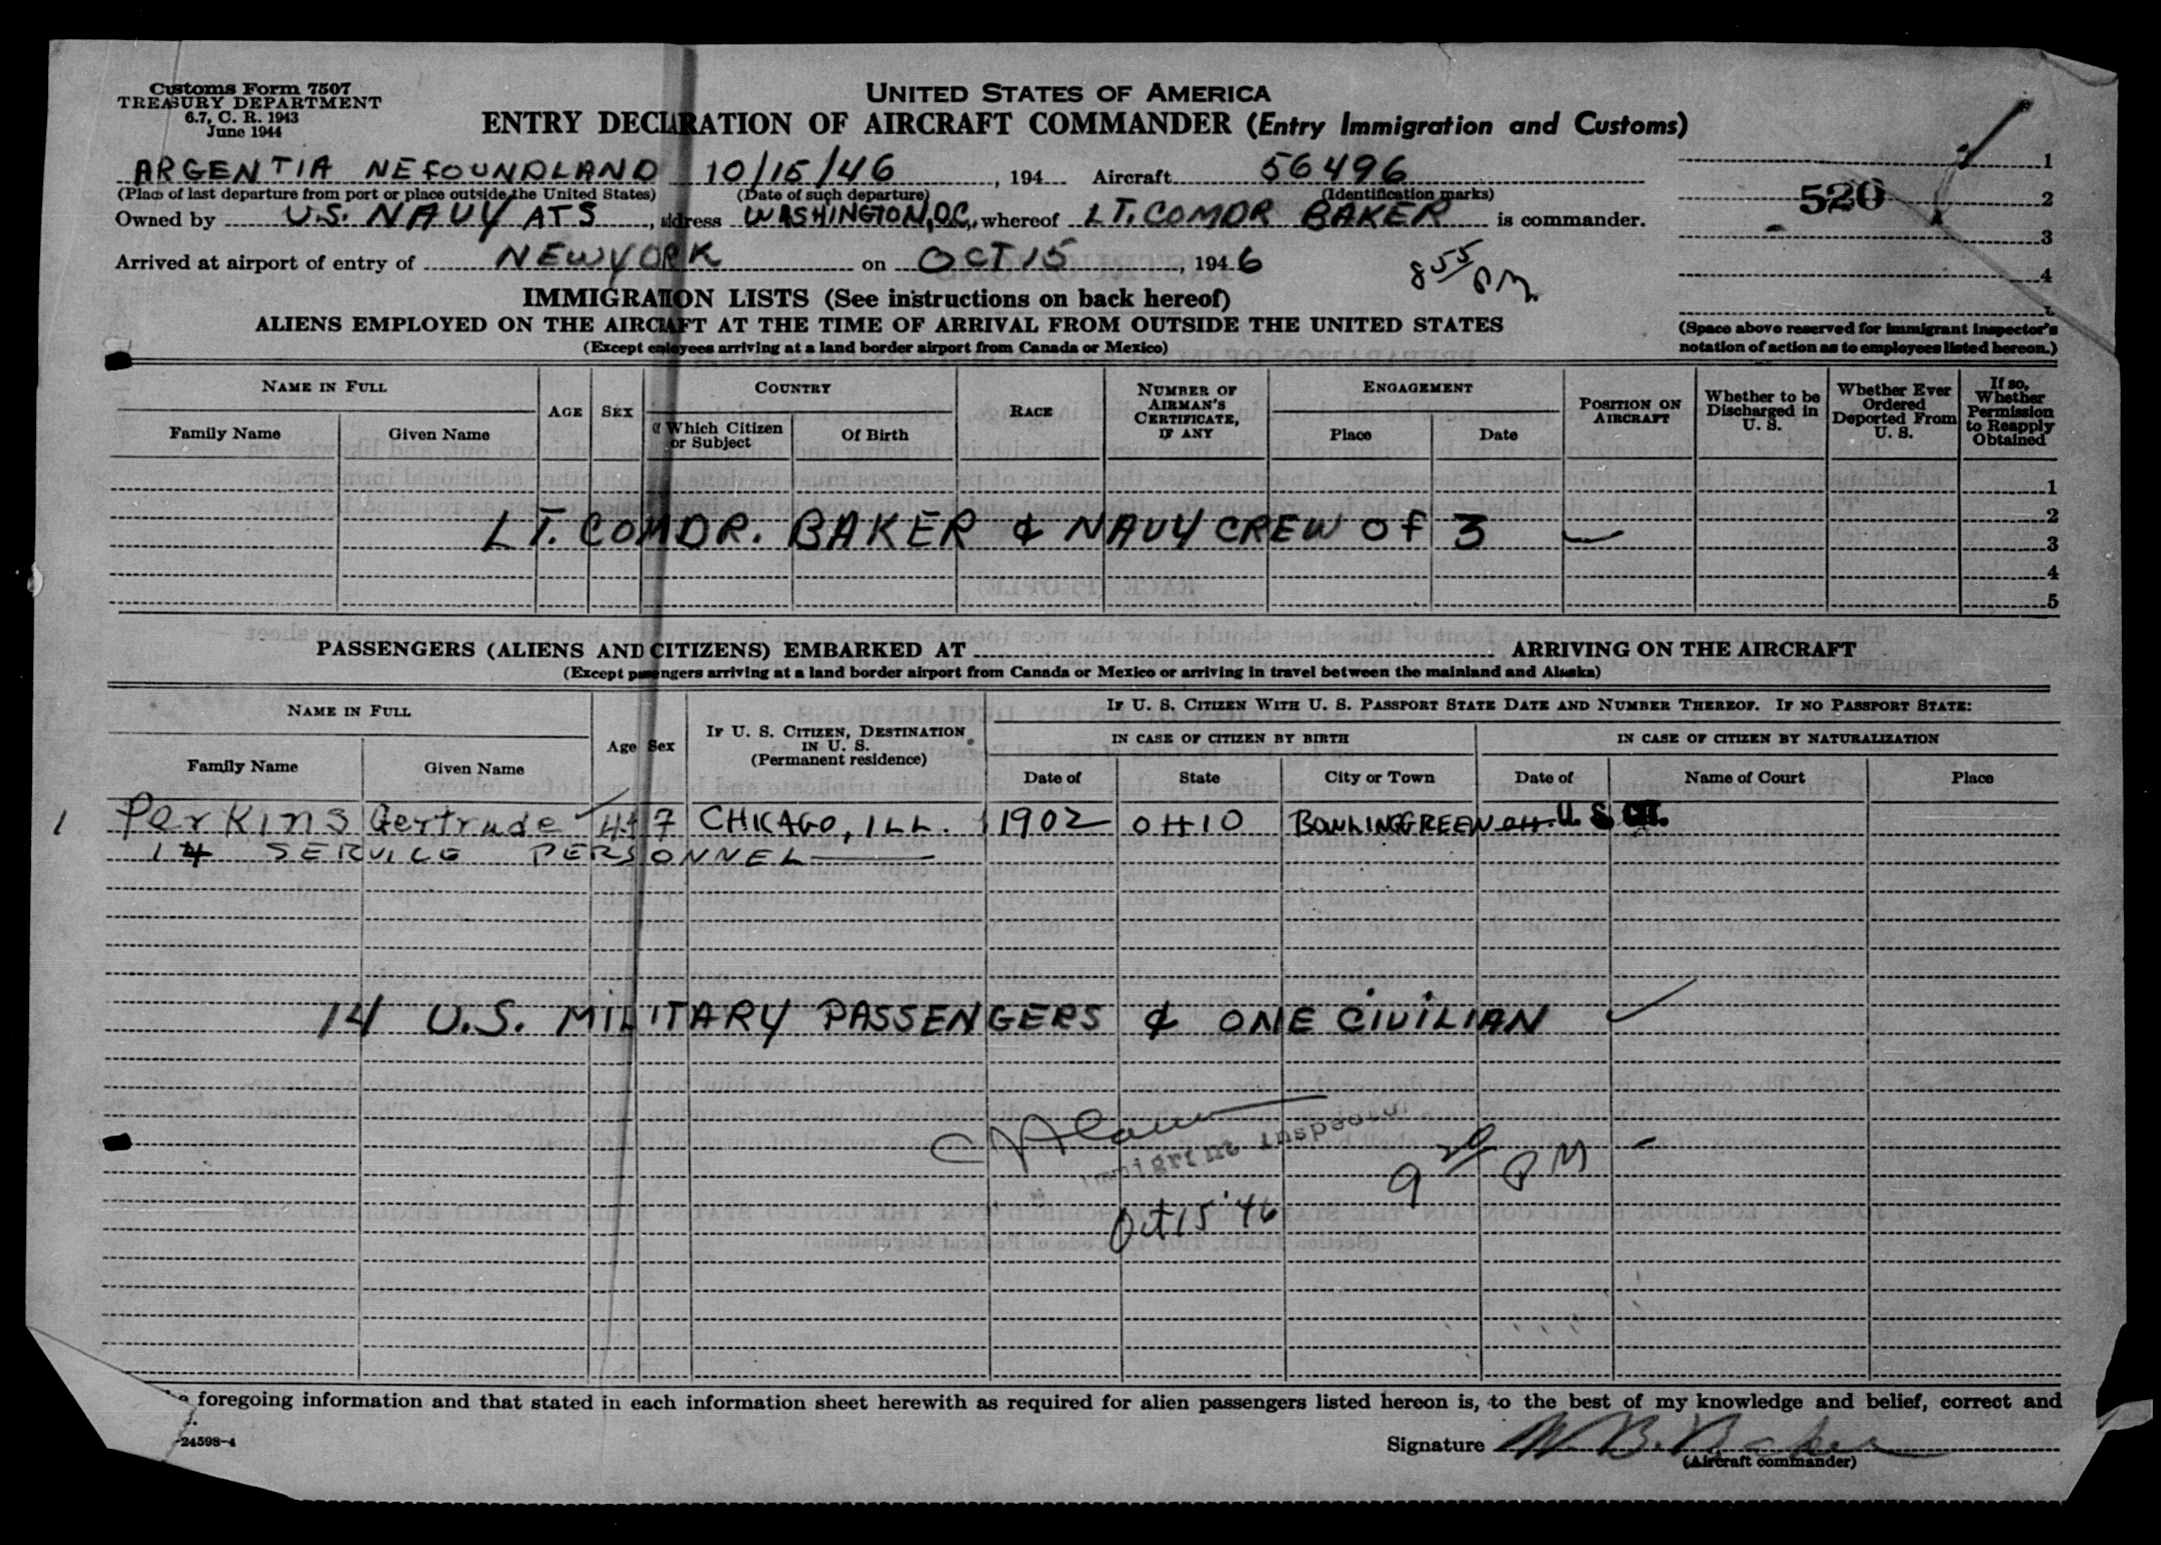 Customs Form 7507
TREASURY DEPARTMENT
6.7, C. R. 1943
June 1944
UNITED STATES OF AMERICA
ENTRY DECLARATION OF AIRCRAFT COMMANDER (Entry Immigration and Customs)
ARGENTIA NEFOUNDLAND 10/15/46, 194 Aircraft 56496
(Place of last departure from port or place outside the United States) (Date of such departure) (Identification marks)
Owned by U.S. NAVY ATS, address WASHINGTON, D.C., whereof LT. COMDR BAKER is commander.
Arrived at airport of entry of NEWYORK on OCT 15, 1946 8 55 PM
1
520 2
3
4
IMMIGRATION LISTS (See instructions on back hereof)
ALIENS EMPLOYED ON THE AIRCRAFT AT THE TIME OF ARRIVAL FROM OUTSIDE THE UNITED STATES
(Except employees arriving at a land border airport from Canada or Mexico)
(Space above reserved for immigrant inspector's
notation of action as to employees listed hereon.)
NAME IN FULL AGE SEX COUNTRY RACE NUMBER OF AIRMAN'S CERTIFICATE, IF ANY ENGAGEMENT POSITION ON AIRCRAFT Whether to be Discharged in U. S. Whether Ever Ordered Deported From U. S. If so, Whether Permission to Reapply Obtained
Family Name Given Name Of Which Citizen or Subject Of Birth Place Date
1
2
LT. COMDR. BAKER & NAVY CREW OF 3 3
4
5
PASSENGERS (ALIENS AND CITIZENS) EMBARKED AT ARRIVING ON THE AIRCRAFT
(Except passengers arriving at a land border airport from Canada or Mexico or arriving in travel between the mainland and Alaska)
NAME IN FULL Age Sex IF U. S. CITIZEN, DESTINATION IN U. S. (Permanent residence) IF U. S. CITIZEN WITH U. S. PASSPORT STATE DATE AND NUMBER THEREOF. IF NO PASSPORT STATE:
IN CASE OF CITIZEN BY BIRTH IN CASE OF CITIZEN BY NATURALIZATION
Family Name Given Name Date of State City or Town Date of Name of Court Place
1 Perkins Gertrude 44 F CHICAGO, ILL. 1902 OHIO BOWLINGGREEN OH. U. S. CIT.
14 SERVICE PERSONNEL
14 U.S. MILITARY PASSENGERS & ONE CIVILIAN
Immigrant Inspector
9 20 PM
Oct 15 '46
foregoing information and that stated in each information sheet herewith as required for alien passengers listed hereon is, to the best of my knowledge and belief, correct and
-24598-4
Signature W. B. Baker
(Aircraft commander)